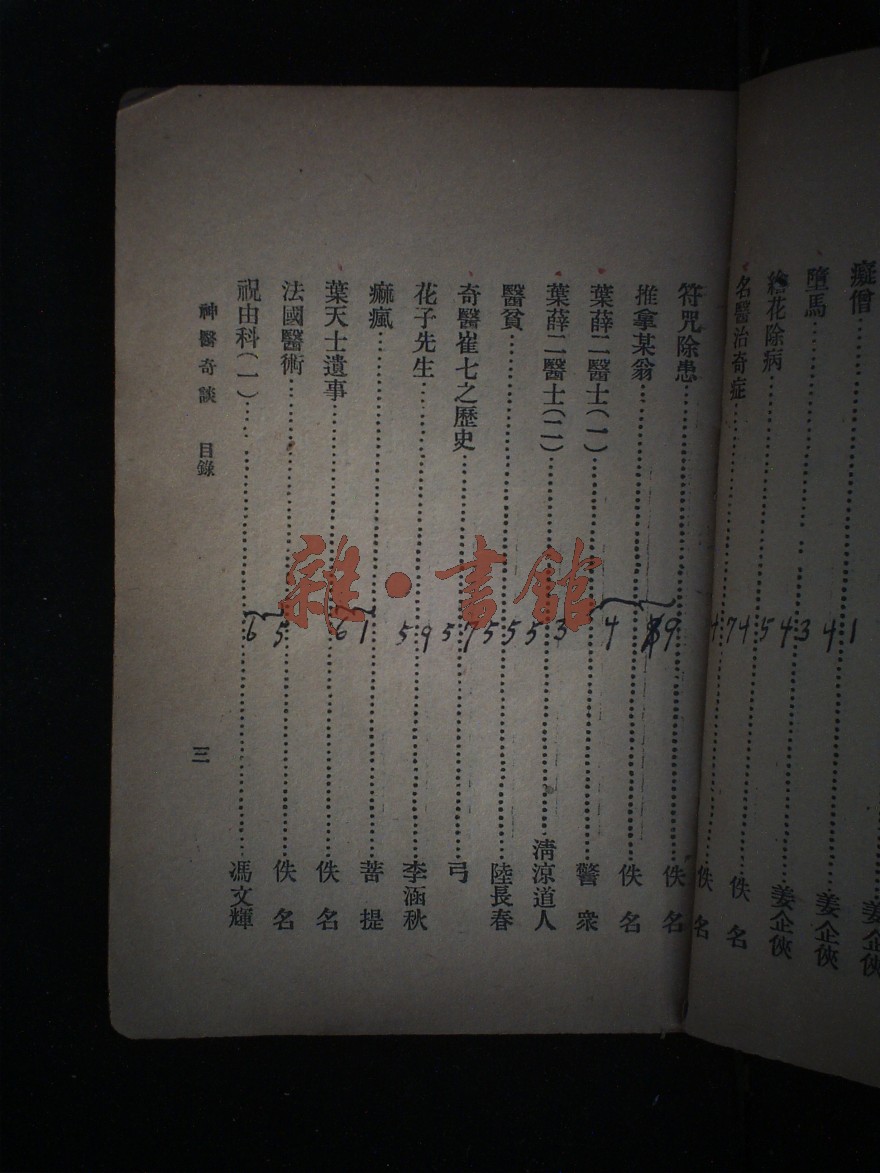 癡僧 41 姜企俠
墮馬 43 姜企俠
繪花除病 45 姜企俠
名醫治奇症 47 佚名
佚名
符咒除患 49 佚名
推拿某翁 佚名
葉薛二醫士(一) 警衆
葉薛二醫士(二) 53 清涼道人
醫貧 55 陸長春
奇醫崔七之歷史 57 弓
花子先生 59 李涵秋
痲瘋 61 菩提
葉天士遺事 佚名
法國醫術 佚名
祝由科(一) 65 馮文輝
神醫奇談 目錄 三
雜·書館